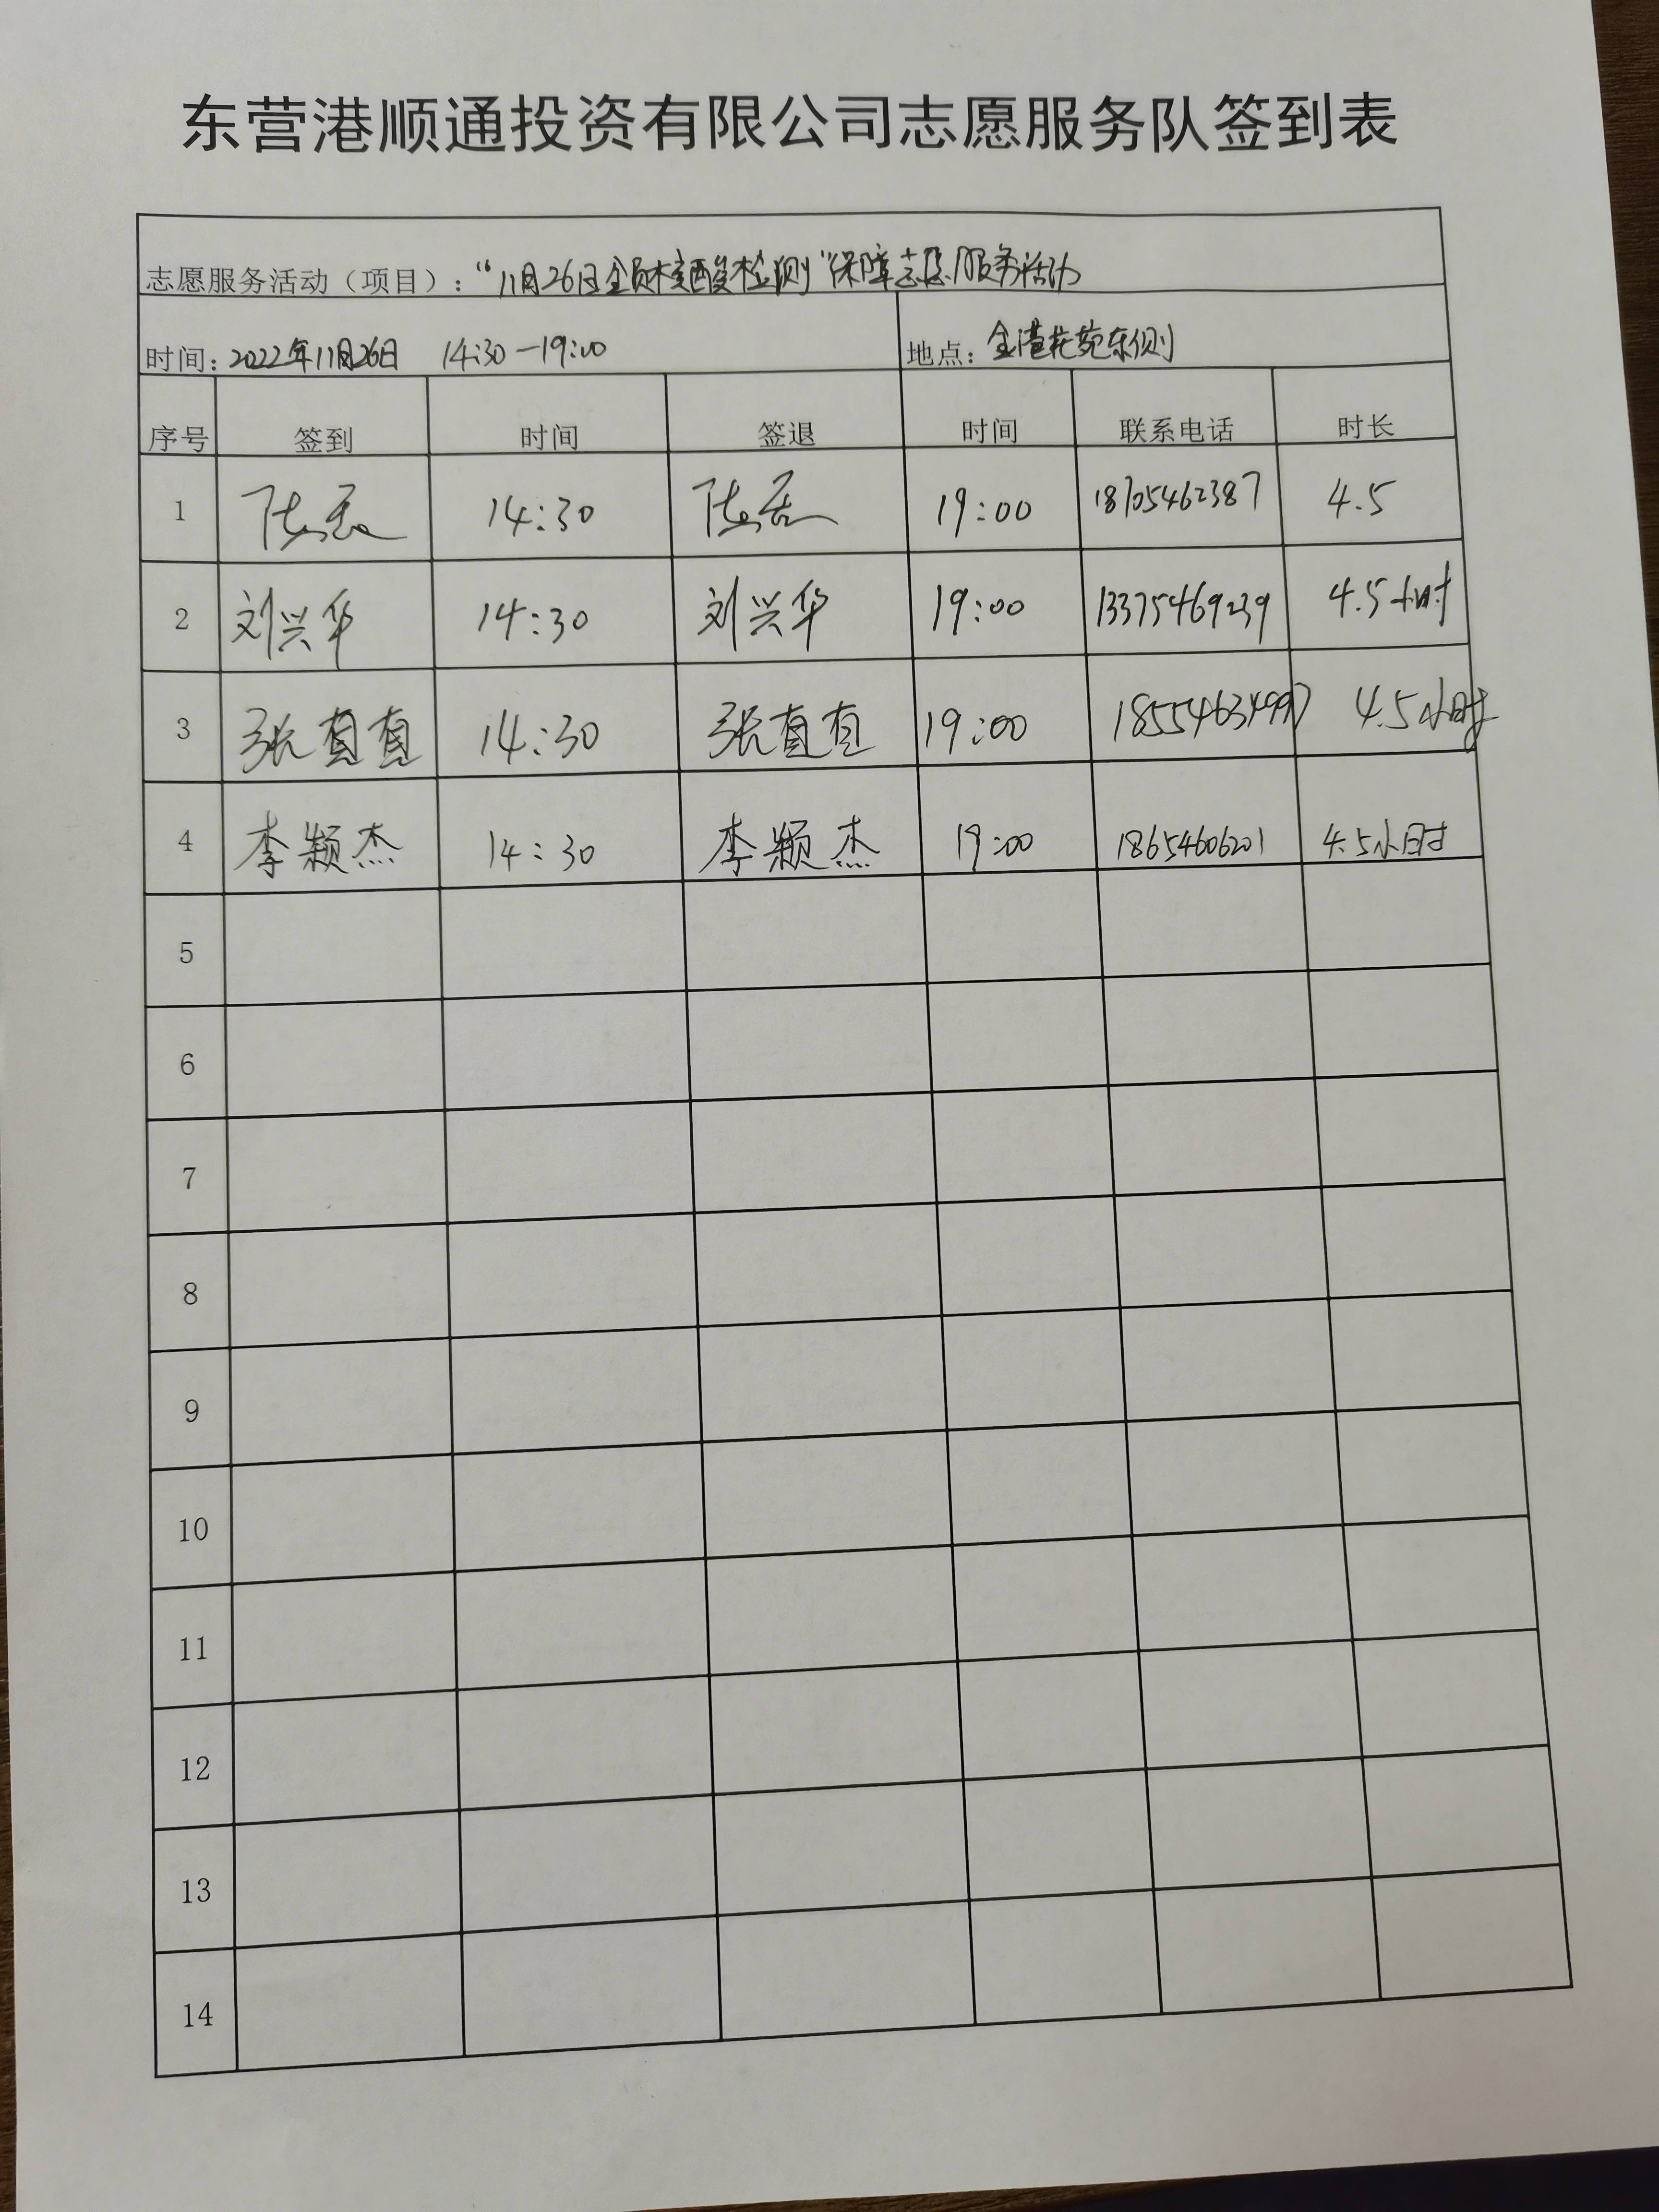 东营港顺通投资有限公司志愿服务队签到表
志愿服务活动（项目）：“11月26日全员核酸检测”保障志愿服务活动
时间：2022年11月26日 14:30—19:00 地点：金港花苑东侧
序号 签到 时间 签退 时间 联系电话 时长
1 陈磊 14:30 陈磊 19:00 18705462387 4.5
2 刘兴华 14:30 刘兴华 19:00 13375469239 4.5小时
3 张直直 14:30 张直直 19:00 4.5小时
4 李颖杰 14:30 李颖杰 19:00 18654606201 4.5小时
5
6
7
8
9
10
11
12
13
14